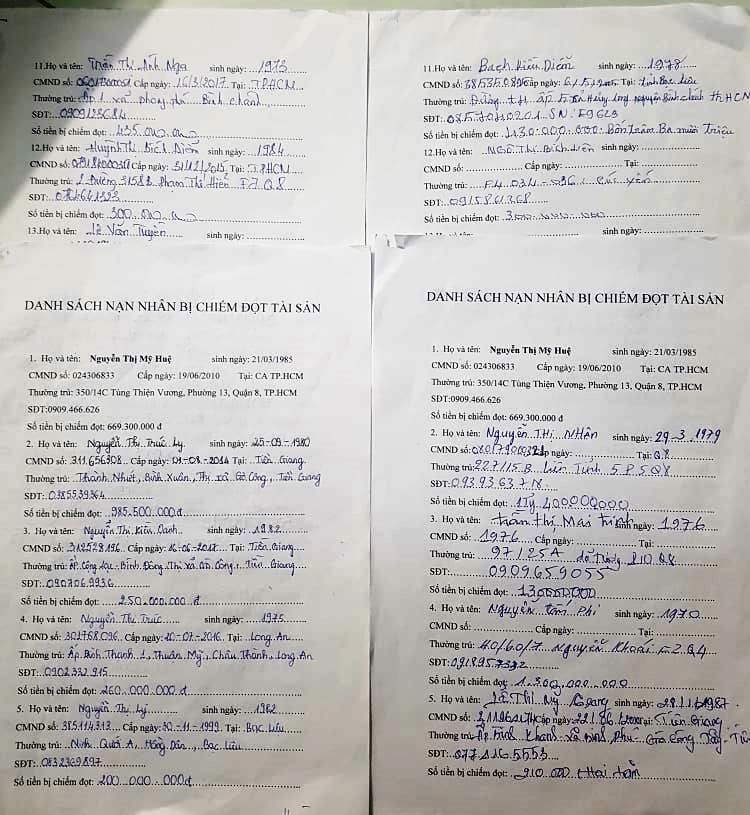 11.Họ và tên: Trần Thị Ánh Nga sinh ngày: 1973
CMND số: Cấp ngày: 16/3/2017 Tại: T.P.HCM
Thường trú: Ấp 1 xã phong phú Bình chánh
SĐT: 0909123684
Số tiền bị chiếm đọt: 435.000.000
12.Họ và tên: Huỳnh Thị Bích Diễm sinh ngày: 1984
CMND số: Cấp ngày: 31/12/2015 Tại: T.PHCM
Thường trú: 2 Đường 3158B Phạm Thế Hiển F7 Q8
SĐT:
Số tiền bị chiếm đọt: 300.000.000
13.Họ và tên: Lê Văn Tuyền sinh ngày:
DANH SÁCH NẠN NHÂN BỊ CHIẾM ĐỌT TÀI SẢN
1. Họ và tên: Nguyễn Thị Mỹ Huệ sinh ngày: 21/03/1985
CMND số: 024306833 Cấp ngày: 19/06/2010 Tại: CA TP.HCM
Thường trú: 350/14C Tùng Thiện Vương, Phường 13, Quận 8, TP.HCM
SĐT:0909.466.626
Số tiền bị chiếm đọt: 669.300.000 đ
2. Họ và tên: Nguyễn Thị Trúc Ly sinh ngày: 25-09-1980
CMND số: 311.656308 Cấp ngày: 01-08-2014 Tại: Tiền Giang
Thường trú: Thành Nhứt, Bình Xuân, Thị xã Gò Công, Tiền Giang
SĐT: 0385539364
Số tiền bị chiếm đọt: 985.500.000đ
3. Họ và tên: Nguyễn Thị Kiều Oanh sinh ngày: 1982
CMND số: 312528196 Cấp ngày: 16-06-2017 Tại: Tiền Giang
Thường trú: Ấp Công Lạc-Bình Đông Thị xã Gò Công, Tiền Giang
SĐT: 090706.9936
Số tiền bị chiếm đọt: 250.000.000 đ
4. Họ và tên: Nguyễn Thị Trúc sinh ngày: 1975
CMND số: 301768096 Cấp ngày: 20-07-2016 Tại: Long An
Thường trú: Ấp Bình Thạnh 1, Thuận Mỹ, Châu Thành, Long An
SĐT: 0902332915
Số tiền bị chiếm đọt: 260.000.000 đ
5. Họ và tên: Nguyễn Thị Lý sinh ngày: 1982
CMND số: 385114313 Cấp ngày: 30-11-1999 Tại: Bạc Liêu
Thường trú: Ninh Quới A, Hồng Dân, Bạc Liêu
SĐT: 0832369897
Số tiền bị chiếm đọt: 200.000.000đ
11.Họ và tên: Bạch Kiều Diễm sinh ngày: 1978
CMND số: 385350895 Cấp ngày: Tại: tỉnh Bạc Liêu
Thường trú: Đường T11 ấp 5 Hưng Long Bình chánh TP HCM
SĐT: 0857040201 SN: F9623
Số tiền bị chiếm đọt: 430.000.000 Bốn trăm Ba mười Triệu
12.Họ và tên: Ngô Thị Bích Liên sinh ngày:
CMND số: Cấp ngày: Tại:
Thường trú: F4
SĐT: 0915861368
Số tiền bị chiếm đọt: 300.000.000
sinh ngày:
DANH SÁCH NẠN NHÂN BỊ CHIẾM ĐỌT TÀI SẢN
1. Họ và tên: Nguyễn Thị Mỹ Huệ sinh ngày: 21/03/1985
CMND số: 024306833 Cấp ngày: 19/06/2010 Tại: CA TP.HCM
Thường trú: 350/14C Tùng Thiện Vương, Phường 13, Quận 8, TP.HCM
SĐT:0909.466.626
Số tiền bị chiếm đọt: 669.300.000 đ
2. Họ và tên: Nguyễn THị NHÂN sinh ngày: 29-3-1979
CMND số: Cấp ngày: Tại: Q8
Thường trú: 227/15.B Liên Tỉnh 5 P5 Q8
SĐT:
Số tiền bị chiếm đọt: 1Tỷ 400000000
3. Họ và tên: trần thị Mai Trinh sinh ngày: 1976
CMND số: 1976 Cấp ngày: Tại:
Thường trú: 97/25A P10 Q8
SĐT: 0909659055
Số tiền bị chiếm đọt:
4. Họ và tên: Nguyễn Tấn Phi sinh ngày: 1970
CMND số: Cấp ngày: Tại:
Thường trú: 40/60/7 Nguyễn Khoái F2 Q4
SĐT: 0918957392
Số tiền bị chiếm đọt: 1.300.000.000
5. Họ và tên: Lê Thị Mỹ Giang sinh ngày: 1987
CMND số: Cấp ngày: Tại: Tiền Giang
Thường trú: Ấp Bình Khánh - xã Bình Phú - Gò Công Tây - Ti
SĐT: 0777.1165553
Số tiền bị chiếm đọt: 210.000 (Hai trăm